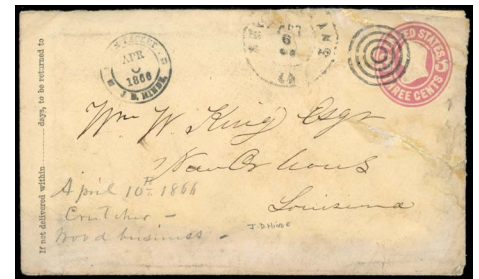 If not delivered within ........ days, to be returned to
APR
1866
J. D. HINDE
UNITED STATES
THREE CENTS
Wm W. King Esqr
New Orleans
Louisiana
April 10th 1866
Crutcher –
Wood business –
J.D. HINDE